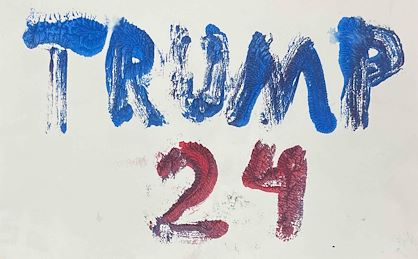 TRUMP
24